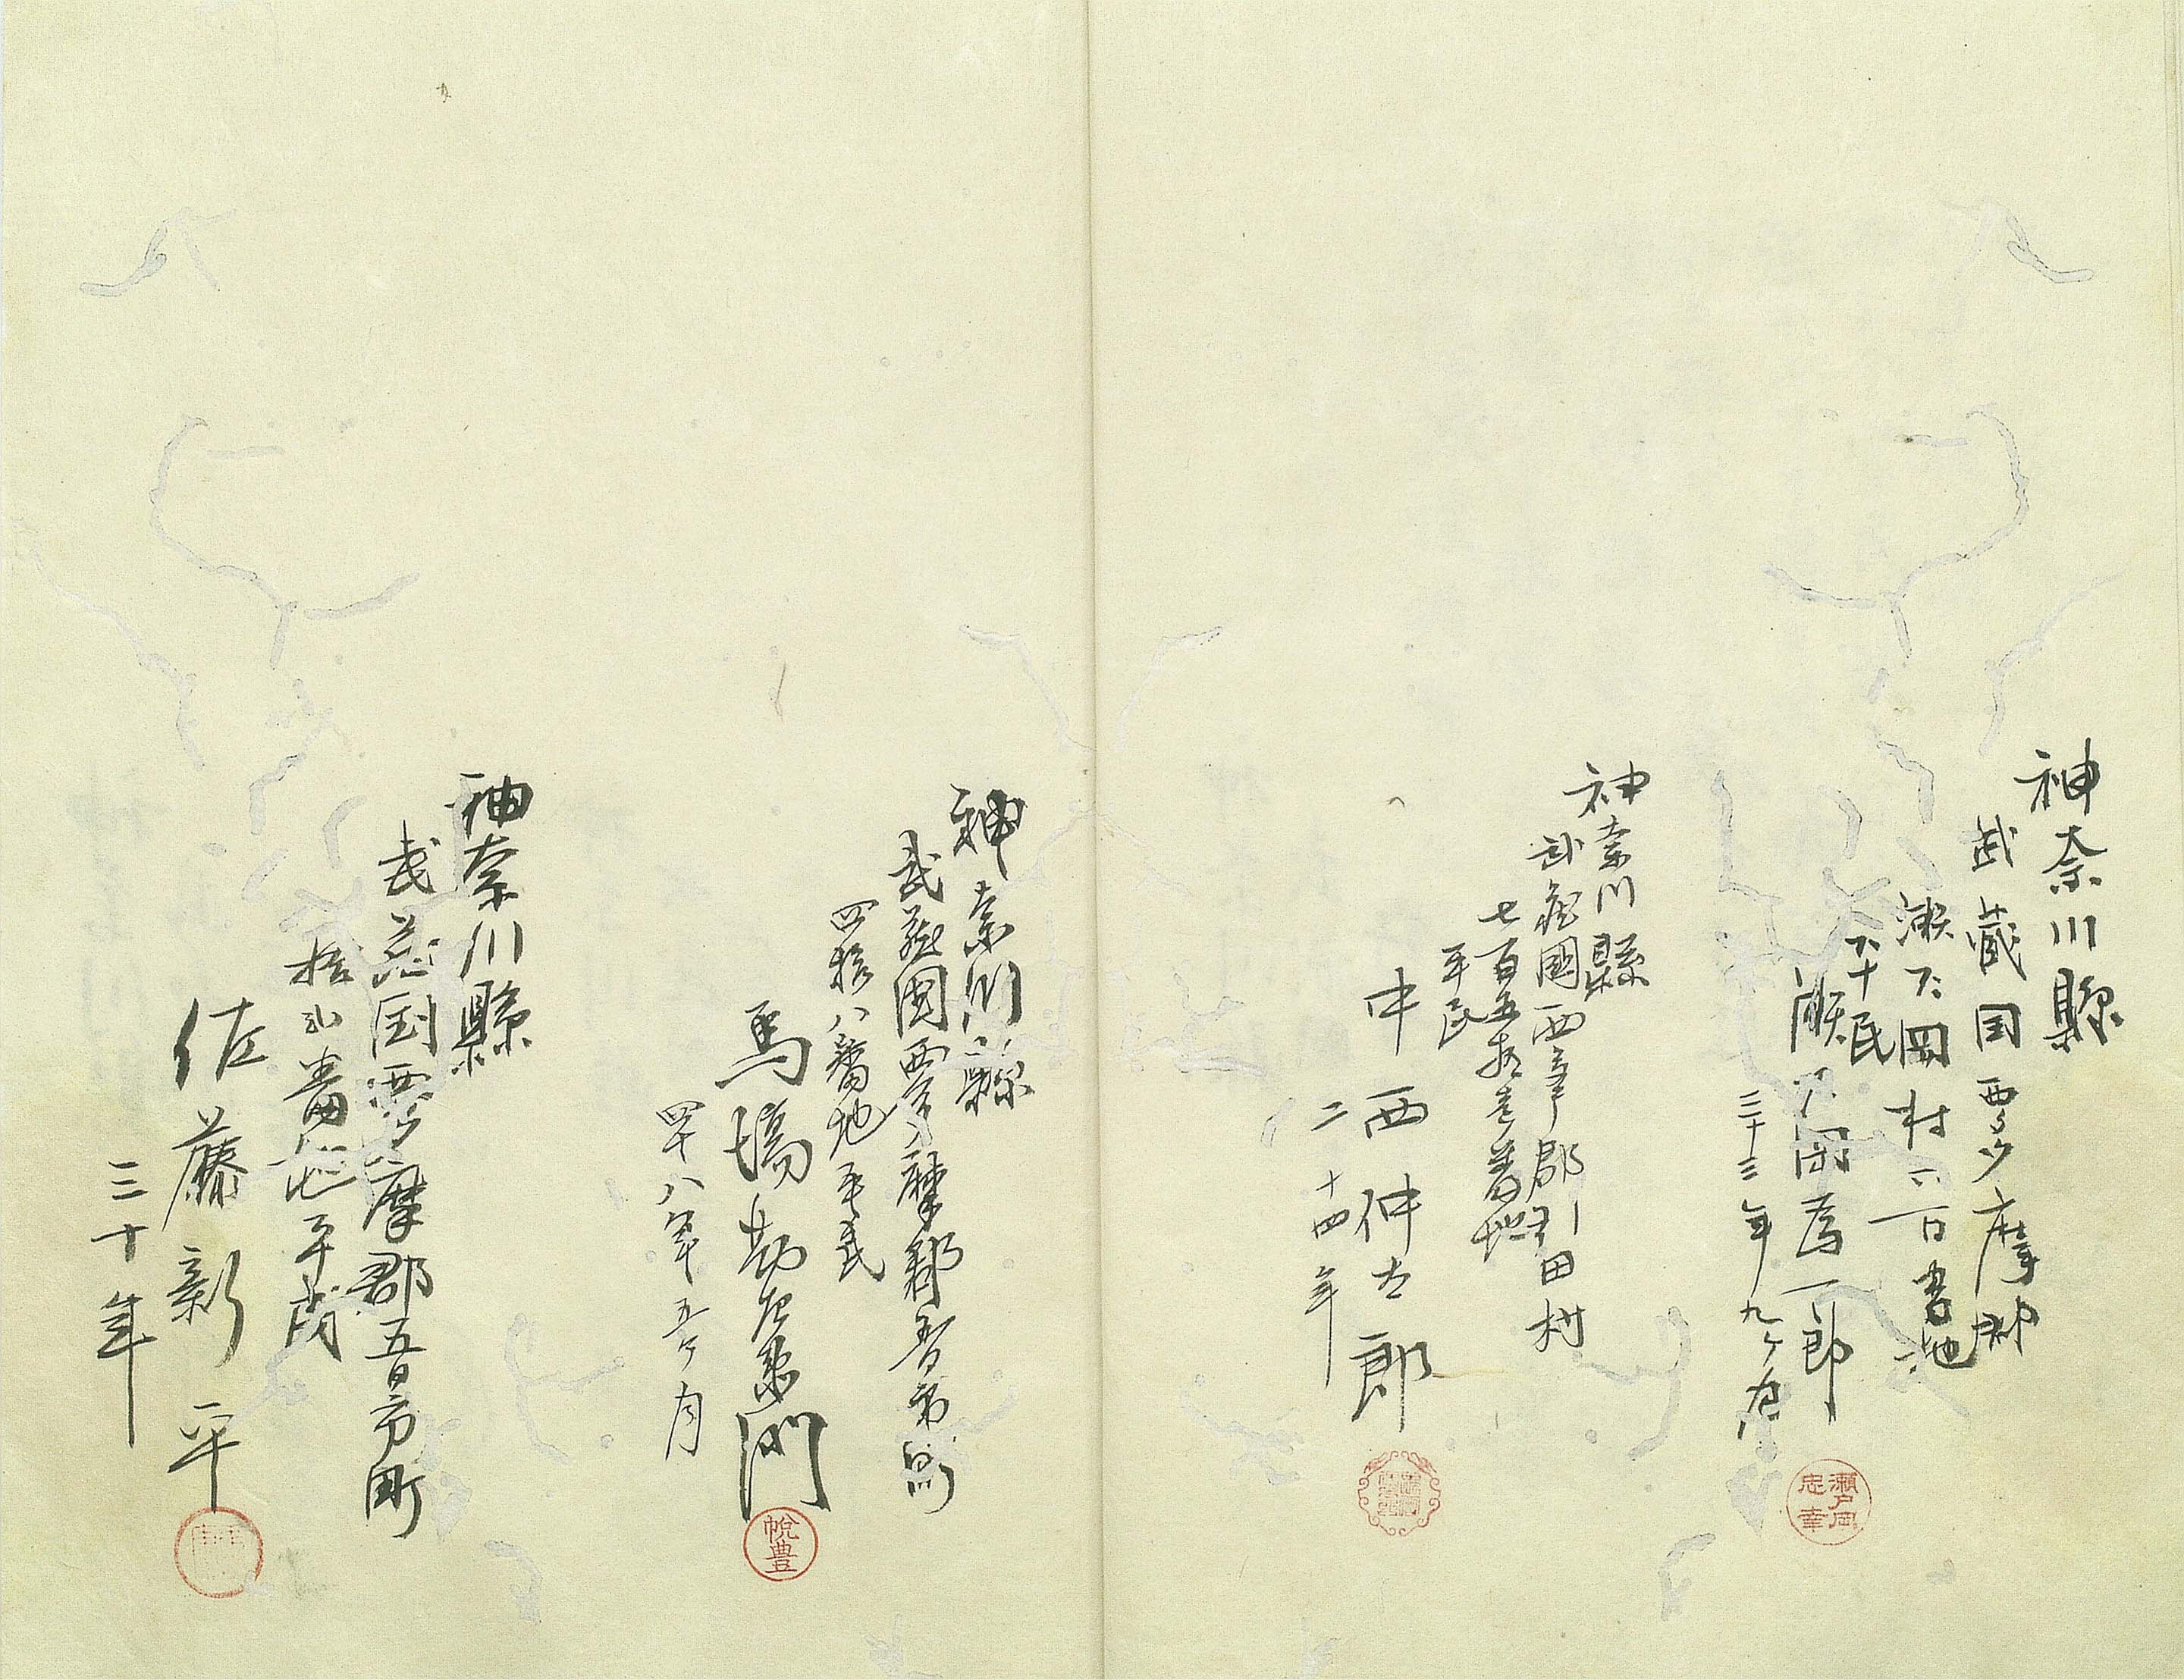 神奈川縣
武藏国西多摩郡
瀬戸岡村六百番地
平民
瀬戸岡為一郎
三十三年九ヶ月
瀬戸岡
忠幸
神奈川縣
武藏國西多摩郡引田村
七百五拾壱番地
平民
中西仲太郎
二十四年
神奈川縣
武藏國西多摩郡
四拾八番地平民
馬場勘左衛門
四十八年五ヶ月
悅豊
神奈川縣
武藏国西多摩郡五日市町
拾番地平民
佐藤新平
三十年